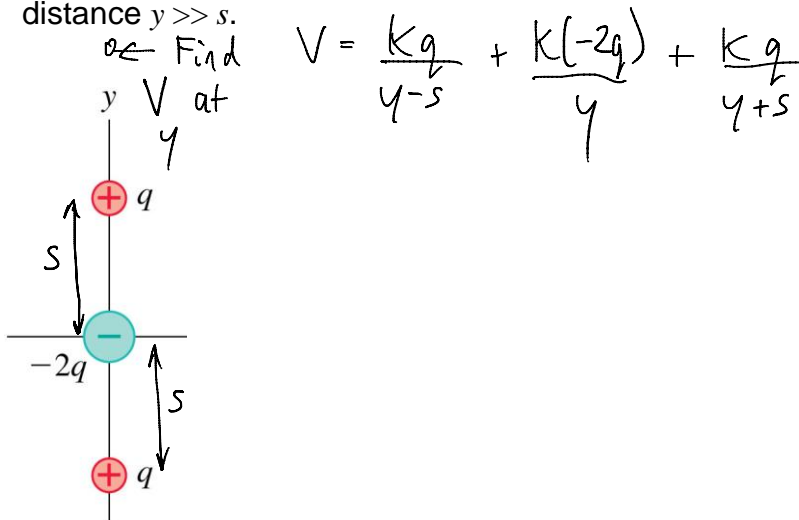 distance y >> s.
Find
V at
y
V = Kq/(y-s) + K(-2q)/y + Kq/(y+s)
y
+ q
s
−
−2q
s
+ q